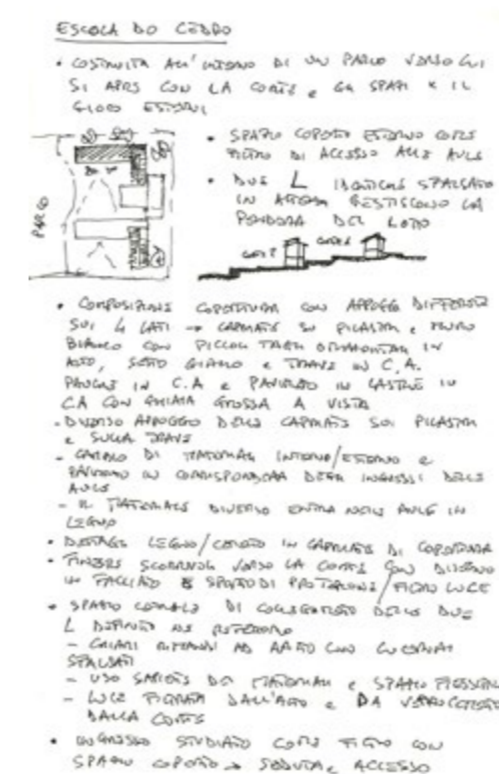 ESCOLA DO CEDRO
• COSTRUITA ALL'INTERNO DI UN PARCO VERSO CUI
SI APRE CON LA CORTE E GLI SPAZI X IL
GIOCO ESTERNI
• SPAZIO COPERTO ESTERNO COME
FILTRO DI ACCESSO ALLE AULE
• DUE L IDENTICHE SFALSATE
IN ALTEZZA GESTISCONO LA
PENDENZA DEL LOTTO
PARCO
CORTE CORTE
• COMPOSIZIONE COPERTURA CON APPOGGI DIFFERENTI
SUI 4 LATI → CAPRIATE SU PILASTRI E MURO
BIANCO CON PICCOLI TAGLI ORIZZONTALI IN
ALTO, SETTO GIALLO E TRAVE IN C.A.
PANCHE IN C.A E PAVIMENTO IN LASTRE IN
CA CON GHIAIA GROSSA A VISTA
- DIVERSO APPOGGIO DELLE CAPRIATE SUI PILASTRI
E SULLA TRAVE
- CAMBIO DI MATERIALI INTERNO/ESTERNO E
PAVIMENTO IN CORRISPONDENZA DEGLI INGRESSI DELLE
AULE
- IL MATERIALE DIVERSO ENTRA NELLE AULE IN
LEGNO
• DETTAGLI LEGNO/ IN CAPRIATE DI COPERTURA
• FINESTRE SCORREVOLI VERSO LA CORTE CON DISEGNO
IN FACCIATA E SPORTO DI PROTEZIONE/FILTRO LUCE
• SPAZIO CENTRALE DI COLLEGAMENTO DELLE DUE
L DEFINITO DAL REFETTORIO
- CHIARI RIMANDI AD AALTO CON LUCERNAI
SFALSATI
- USO SAPIENTE DEI MATERIALI E SPAZIO FLESSIBILE
- LUCE FILTRATA DALL'ALTO E DA
DALLA CORTE
• INGRESSO STUDIATO COME FILTRO CON
SPAZIO COPERTO → SEDUTA E ACCESSO